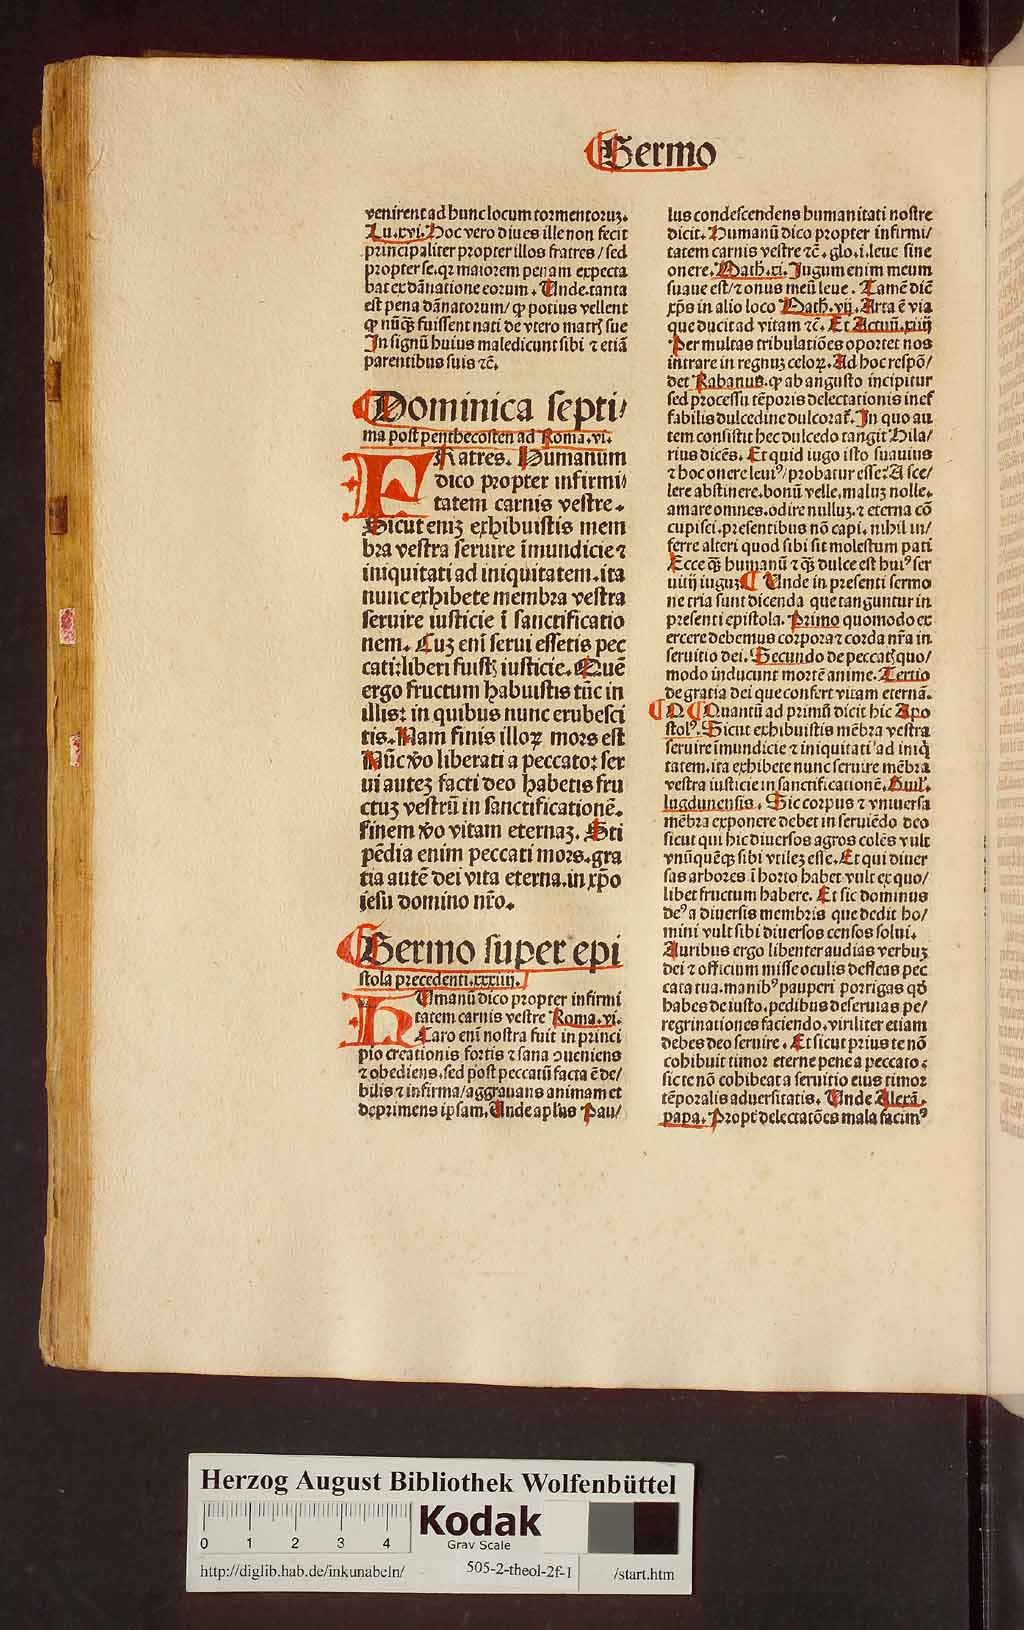 Sermo
venirent ad hunc locum tormentoruꝫ.
Lu.xvi. Hoc vero diues ille non fecit
principaliter propter illos fratres / sed
propter se. qꝛ maiorem penam expecta
bat ex dānatione eorum. Unde. tanta
est pena dānatorum / ꝙ potius vellent
ꝙ nūꝙ̄ fuissent nati de vtero matrꝭ sue
In signū huius maledicunt sibi ⁊ etiā
parentibus suis ⁊c̄.
Dominica septi/
ma post penthecosten ad Roma.vi.
FRatres. Humanum
dico propter infirmi/
tatem carnis vestre.
Sicut eniꝫ exhibuistis mem
bra vestra seruire īmundicie ⁊
iniquitati ad iniquitatem. ita
nunc exhibete membra vestra
seruire iusticie ī sanctificatio
nem. Cuꝫ enī serui essetis pec
cati: liberi fuistꝭ iusticie. Quē
ergo fructum habuistis tūc in
illis: in quibus nunc erubesci
tis. Nam finis illoꝝ mors est
Nūc v̄o liberati a peccato: ser
ui auteꝫ facti deo habetis fru
ctuꝫ vestrū in sanctificationē.
finem v̄o vitam eternaꝫ. Sti
pēdia enim peccati mors. gra
tia autē dei vita eterna. in xp̄o
iesu domino nr̄o.
Sermo super epi
stola precedenti.xxxiiij.
HUmanū dico propter infirmi
tatem carnis vestre Roma.vi.
Caro enī nostra fuit in princi
pio creationis fortis ⁊ sana ꝯueniens
⁊ obediens. sed post peccatū facta ē de/
bilis ⁊ infirma / aggrauans animam et
deprimens ipsam. Unde apl̄us Pau/
lus condescendens humanitati nostre
dicit. Humanū dico propter infirmi/
tatem carnis vestre ⁊c̄. glo. i. leue sine
onere. Math.xi. Jugum enim meum
suaue est / ⁊ onus meū leue. Tamē dic̄
xp̄s in alio loco Math.vij. Arta ē via
que ducit ad vitam ⁊c̄. Et Actuū.xiiij
Per multas tribulatiōes oportet nos
intrare in regnuꝫ celoꝝ. Ad hoc respō/
det Rabanus. ꝙ ab angusto incipitur
sed processu tēporis delectationis inef
fabilis dulcedine dulcorat̄. In quo au
tem consistit hec dulcedo tangit Hila/
rius dicēs. Et quid iugo isto suauius
⁊ hoc onere leuiꝰ / probatur esse: A sce/
lere abstinere. bonū velle. maluꝫ nolle.
amare omnes. odire nulluꝫ. ⁊ eterna cō
cupisci. presentibus nō capi. nihil in/
ferre alteri quod sibi sit molestum pati
Ecce ꝙ̄ humanū ⁊ ꝙ̄ dulce est huiꝰ ser
uitij iuguꝫ. Unde in presenti sermo
ne tria sunt dicenda que tanguntur in
presenti epistola. Primo quomodo ex
ercere debemus corpora ⁊ corda nr̄a in
seruitio dei. Secundo de peccatꝭ quo/
modo inducunt mortē anime. Tertio
de gratia dei que confert vitam eternā.
Quantū ad primū dicit hic Apo
stolꝰ. Sicut exhibuistis mēbra vestra
seruire īmundicie ⁊ iniquitati ad iniq̇
tatem. ita exhibete nunc seruire mēbra
vestra iusticie in sanctificationē. Guil'.
lugdunensis. Sic corpus ⁊ vniuersa
mēbra exponere debet in seruiēdo deo
sicut qui hic diuersos agros colēs vult
vnūquēqꝫ sibi vtileꝫ esse. Et qui diuer
sas arbores ī horto habet vult ex quo/
libet fructum habere. Et sic dominus
deꝰ a diuersis membris que dedit ho/
mini vult sibi diuersos censos solui.
Auribus ergo libenter audias verbuꝫ
dei ⁊ officium misse oculis defleas pec
cata tua. manibꝰ pauperi porrigas qd̄
habes de iusto. pedibus deseruias pe/
regrinationes faciendo. viriliter etiam
debes deo seruire. Et sicut prius te nō
cohibuit timor eterne pene a peccato:
sic te nō cohibeat a seruitio eius timor
tēporalis aduersitatis. Unde Alexā.
papa. Propt̄ delectatōes mala facimꝰ
Herzog August Bibliothek Wolfenbüttel
0 1 2 3 4
Kodak
Gray Scale
http://diglib.hab.de/inkunabeln/
505-2-theol-2f-1
/start.htm